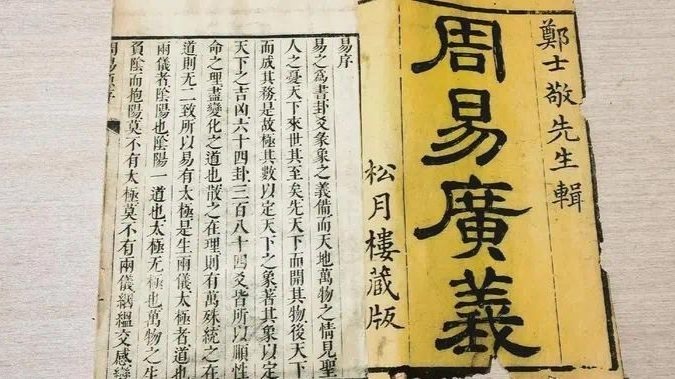 鄭士敬先生輯
周易廣義
松月樓藏版
易序
易之爲書卦爻彖象之義備而天地萬物之情見聖
人之憂天下來世其至矣先天下而開其物後天下
而成其務是故極其數以定天下之象著其象以定
天下之吉凶六十四卦三百八十四爻皆所以順性
命之理盡變化之道也散之在理則有萬殊統之在
道則无二致所以易有太極是生兩儀太極者道也
兩儀者陰陽也陰陽一道也太極无極也萬物之生
負陰而抱陽莫不有太極莫不有兩儀絪縕交感變